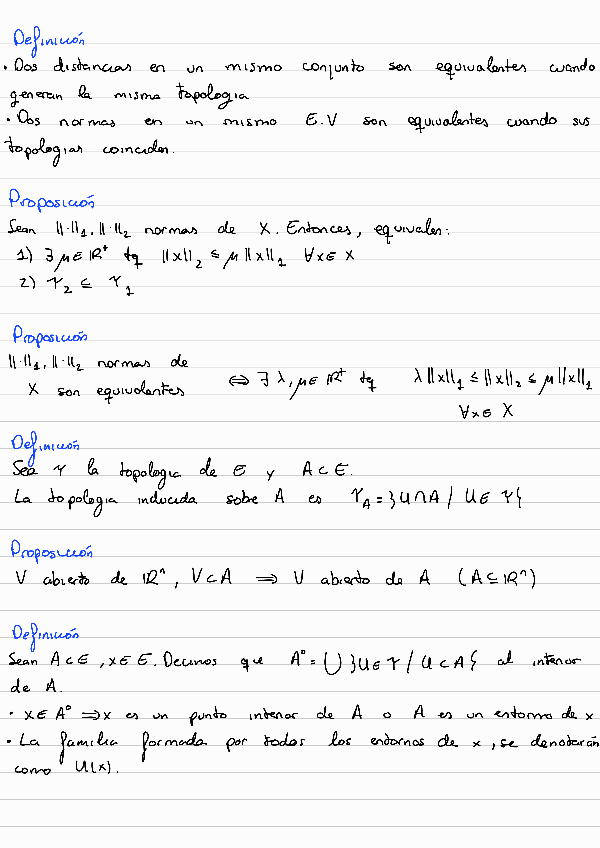 Definición
• Dos distancias en un mismo conjunto son equivalentes cuando
generan la misma topología
• Dos normas en un mismo E.V son equivalentes cuando sus
topologías coinciden.
Proposición
Sean ||·||₁, ||·||₂ normas de X. Entonces, equivalen:
1) ∃ μ ∈ ℝ⁺ tq ||x||₂ ≤ μ ||x||₁ ∀x ∈ X
2) τ₂ ⊆ τ₁
Proposición
||·||₁, ||·||₂ normas de
X son equivalentes ⇔ ∃ λ, μ ∈ ℝ⁺ tq λ||x||₁ ≤ ||x||₂ ≤ μ||x||₁
∀x ∈ X
Definición
Sea τ la topología de E y A ⊂ E.
La topología inducida sobe A es τ_A = }U ∩ A / U ∈ τ{
Proposición
V abierto de ℝⁿ, V ⊂ A ⟹ V abierto de A (A ⊆ ℝⁿ)
Definición
Sean A ⊂ E, x ∈ E. Decimos que A° = ⋃ }U ∈ τ / U ⊂ A{ al interior
de A.
• x ∈ A° ⟹ x es un punto interior de A o A es un entorno de x
• La familia formada por todos los entornos de x, se denotarán
como U(x).